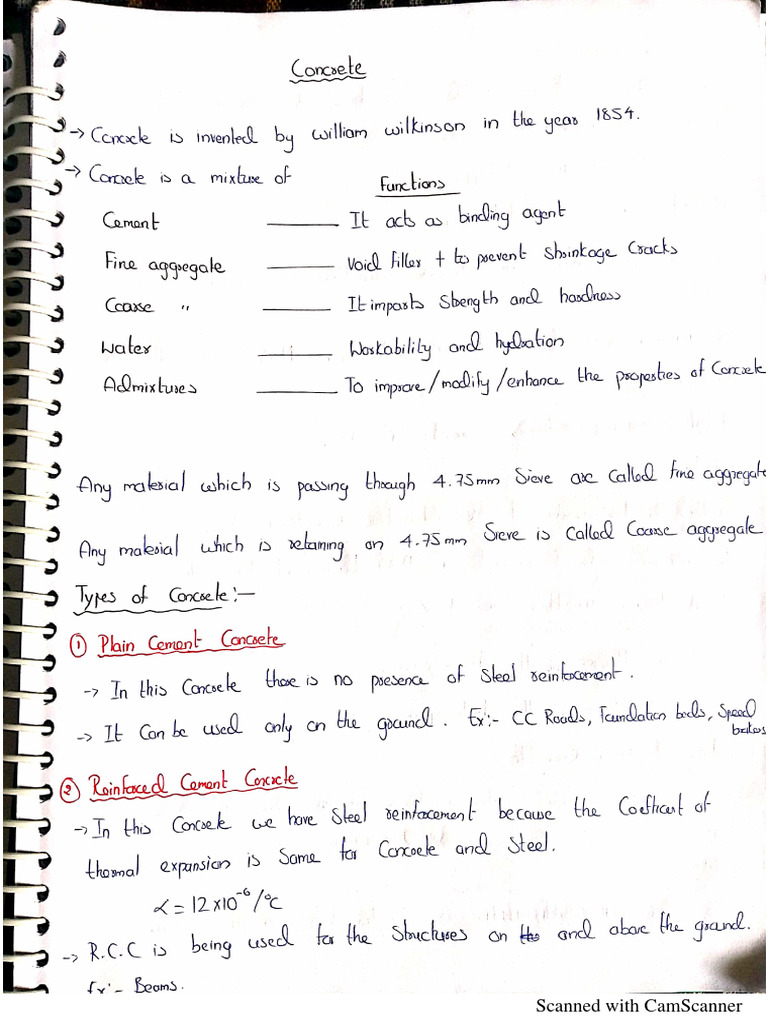 Concrete
→ Concrete is invented by William Wilkinson in the year 1854.
→ Concrete is a mixture of Functions
Cement ——— It acts as binding agent
Fine aggregate ——— Void filler + to prevent Shrinkage Cracks
Coarse " ——— It imparts Strength and hardness
Water ——— Workability and hydration
Admixtures ——— To improve/modify/enhance the properties of Concrete
Any material which is passing through 4.75mm Sieve are called fine aggregate
Any material which is retaining on 4.75mm Sieve is called Coarse aggregate
Types of Concrete:-
① Plain Cement Concrete
→ In this Concrete there is no presence of Steel reinforcement.
→ It can be used only on the ground. Ex:- CC Roads, Foundation beds, Speed
brakes
② Reinforced Cement Concrete
→ In this Concrete we have Steel reinforcement because the Coefficient of
thermal expansion is Same for Concrete and Steel.
α = 12×10⁻⁶/°C
→ R.C.C is being used for the Structures on and above the ground.
Ex:- Beams.
Scanned with CamScanner